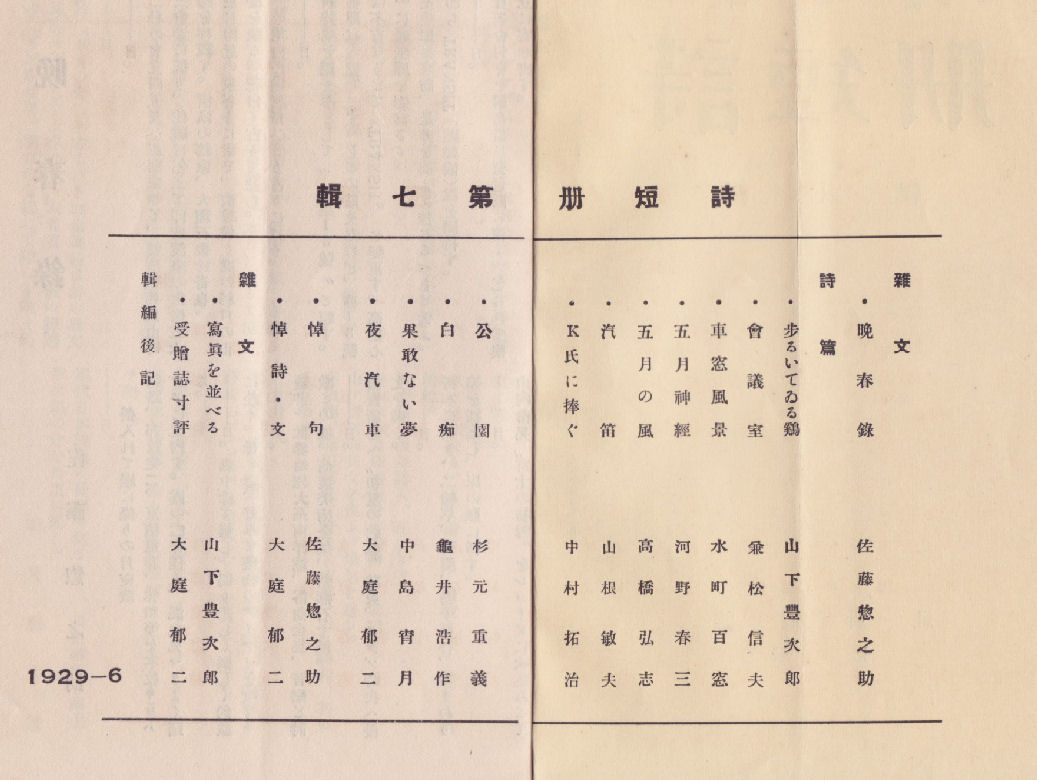 詩短册第七輯
雜文
・晩春錄 佐藤惣之助
詩篇
・步るいてゐる鷄 山下豐次郎
・會議室 兼松信夫
・車窓風景 水町百窓
・五月神經 河野春三
・五月の風 高橋弘志
・汽笛 山根敏夫
・K氏に捧ぐ 中村拓治
・公園 杉元重義
・白痴 龜井浩作
・果敢ない夢 中島宵月
・夜汽車 大庭郁二
・悼句 佐藤惣之助
・悼詩・文 大庭郁二
雜文
・寫眞を並べる 山下豐次郎
・受贈誌寸評 大庭郁二
輯編後記
1929-6